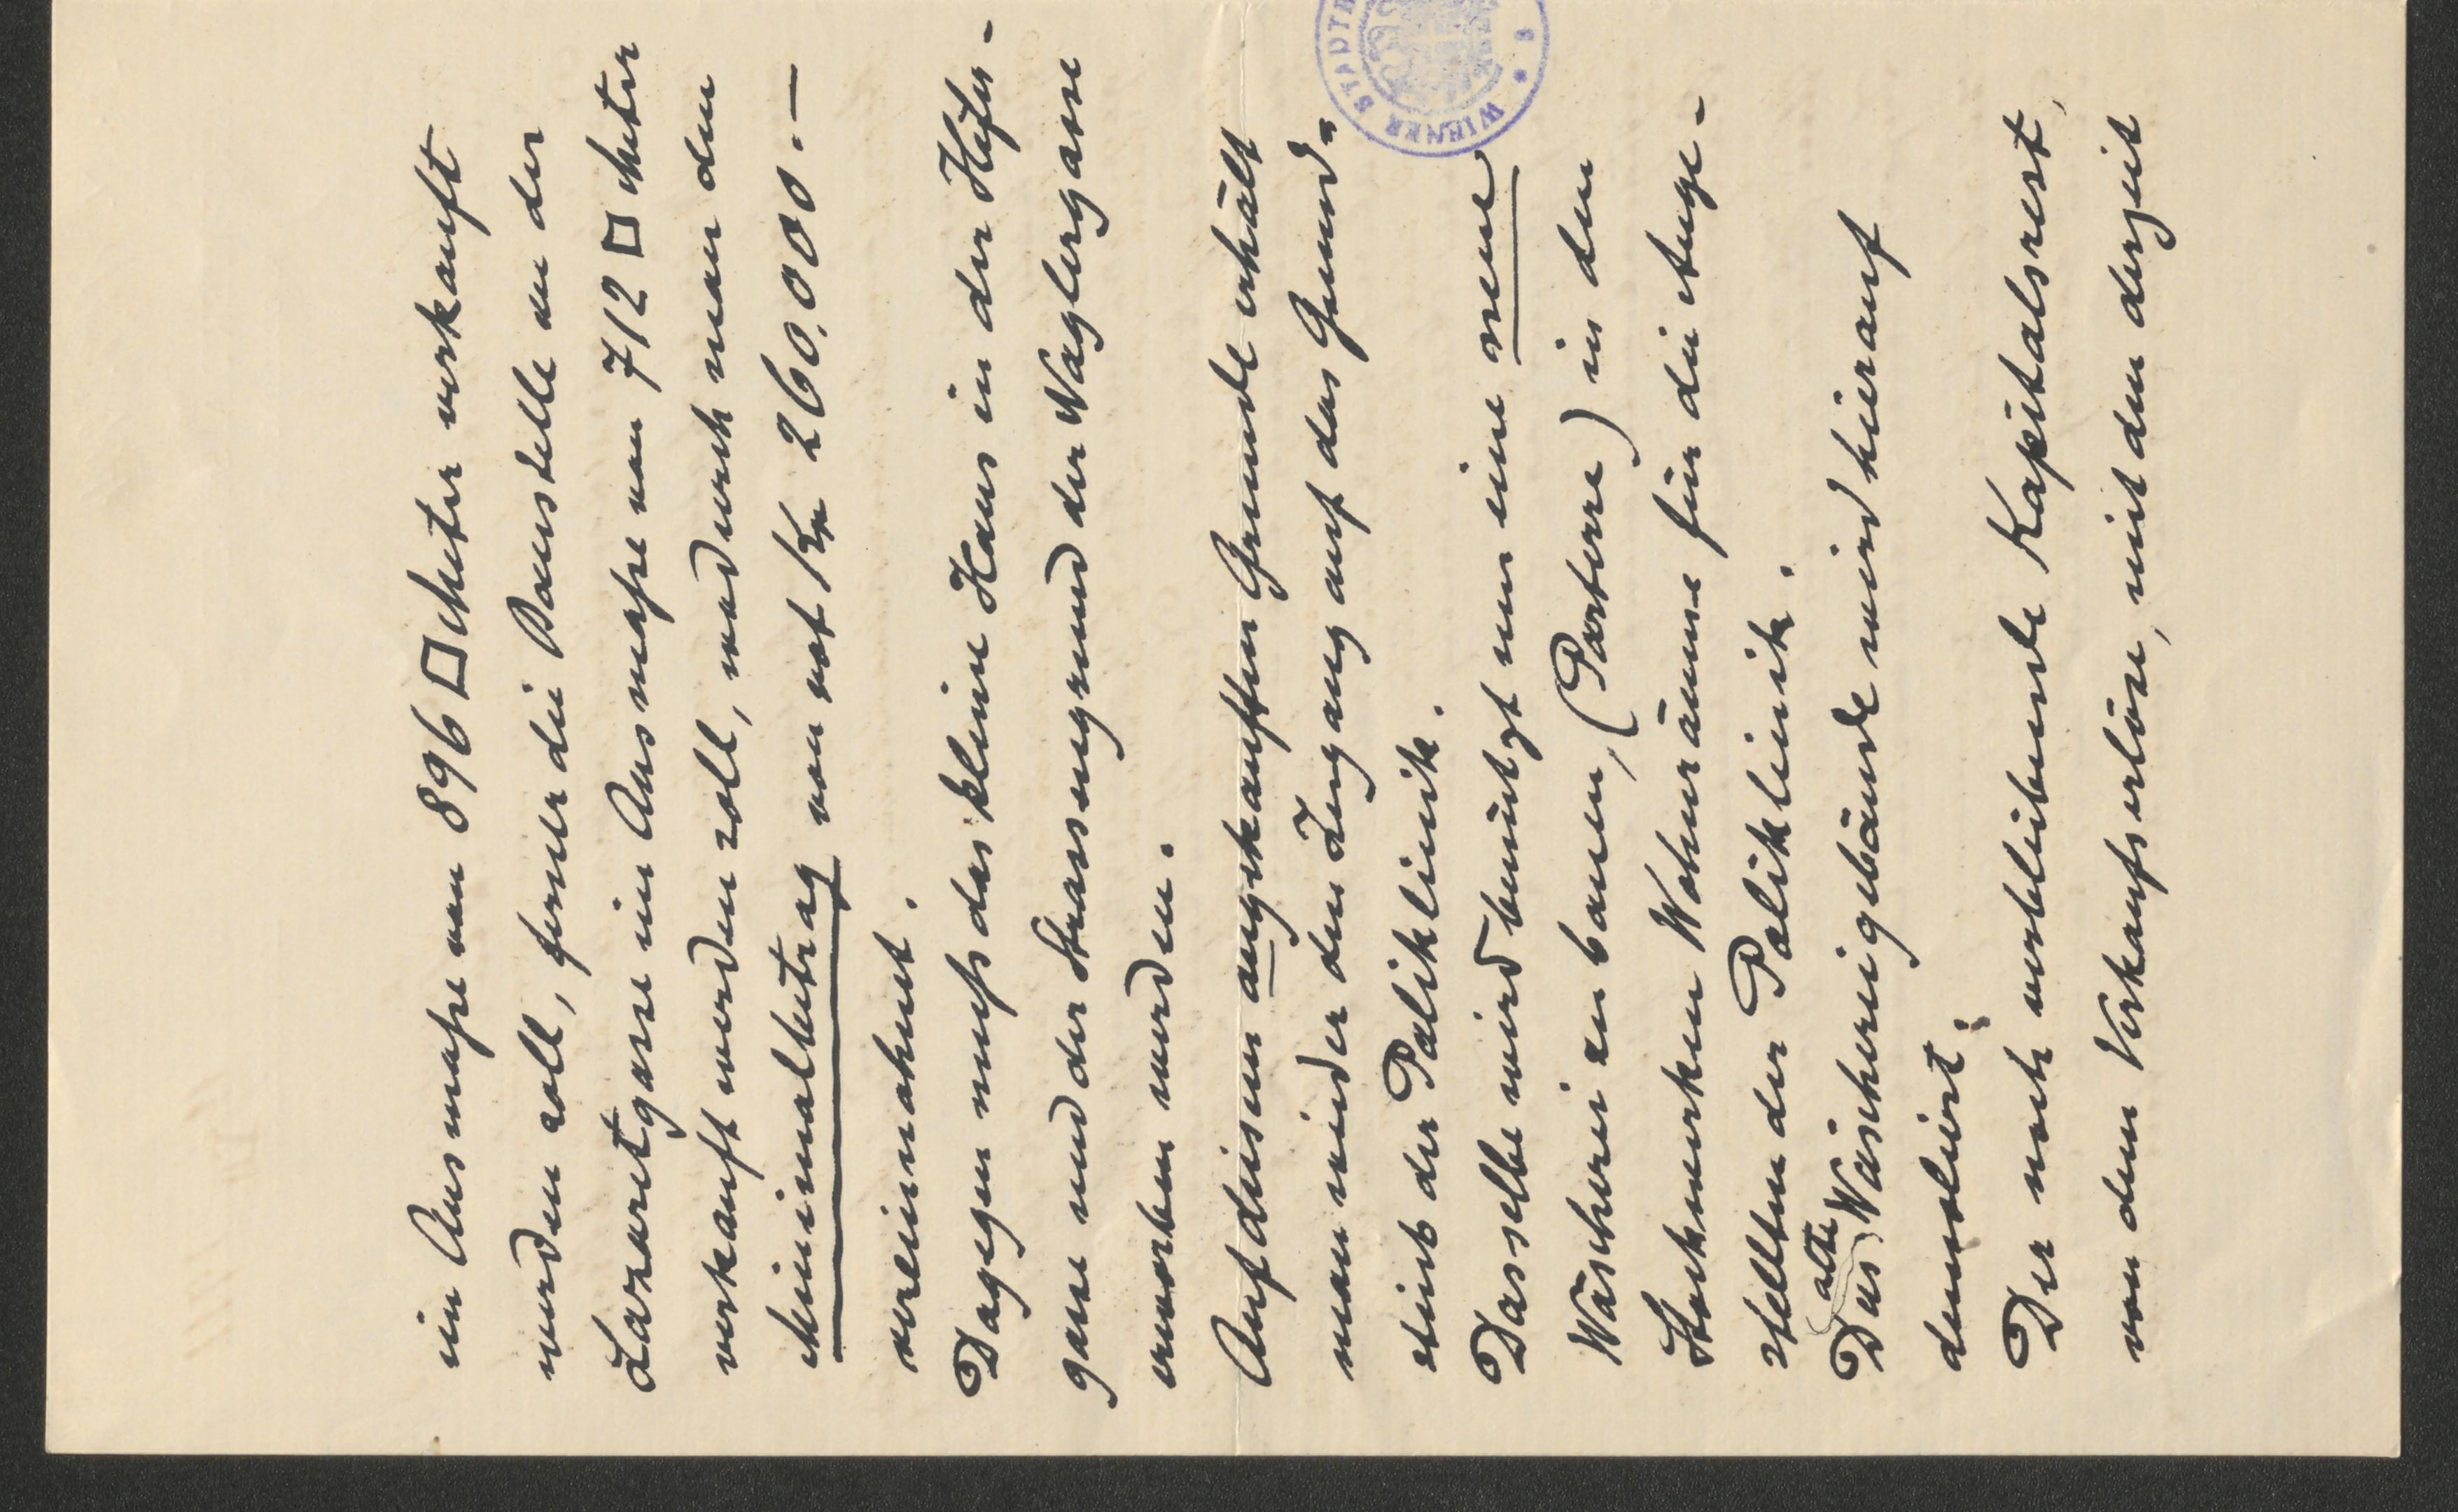 im Ausmaße von 896 □ Meter verkauft
werden soll, ferner die Baustelle an der
Lazaretgasse im Ausmaße von 712 □ Meter
verkauft werden soll, wodurch man den
Minimalbetrag von rot Kr 260,000.—
vereinnahmt.
Dagegen muß das kleine Haus in der Höfer-
gasse und der Strassengrund der Waglergasse
erworben werden.
Auf diesem angekauften Grunde erhält
man wieder den Zugang auf das Grund-
stück der Poliklinik.
Dasselbe wird benützt um eine neue
Wäscherei zu bauen, (Parterre) in den
Stockwerken Wohnräume für die Ange-
stellten der Poliklinik.
Das alte Wäschereigebäude wird hierauf
demoliert.
Der noch verbleibende Kapitalsrest,
von dem Verkaufserlöse, mit dem derzeit
WIENER STADTB